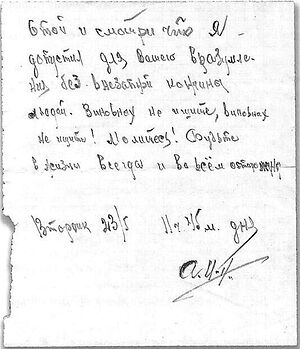 Стой и смотри что Я
допустил для Вашего вразумле-
ния без внезапной кончины
людей. Виновных не ищите, виновных
не ищите! Молитесь! Будьте
в жизни всегда и во всём осторожны
Вторник 23/5 11 ч 45 м. дня